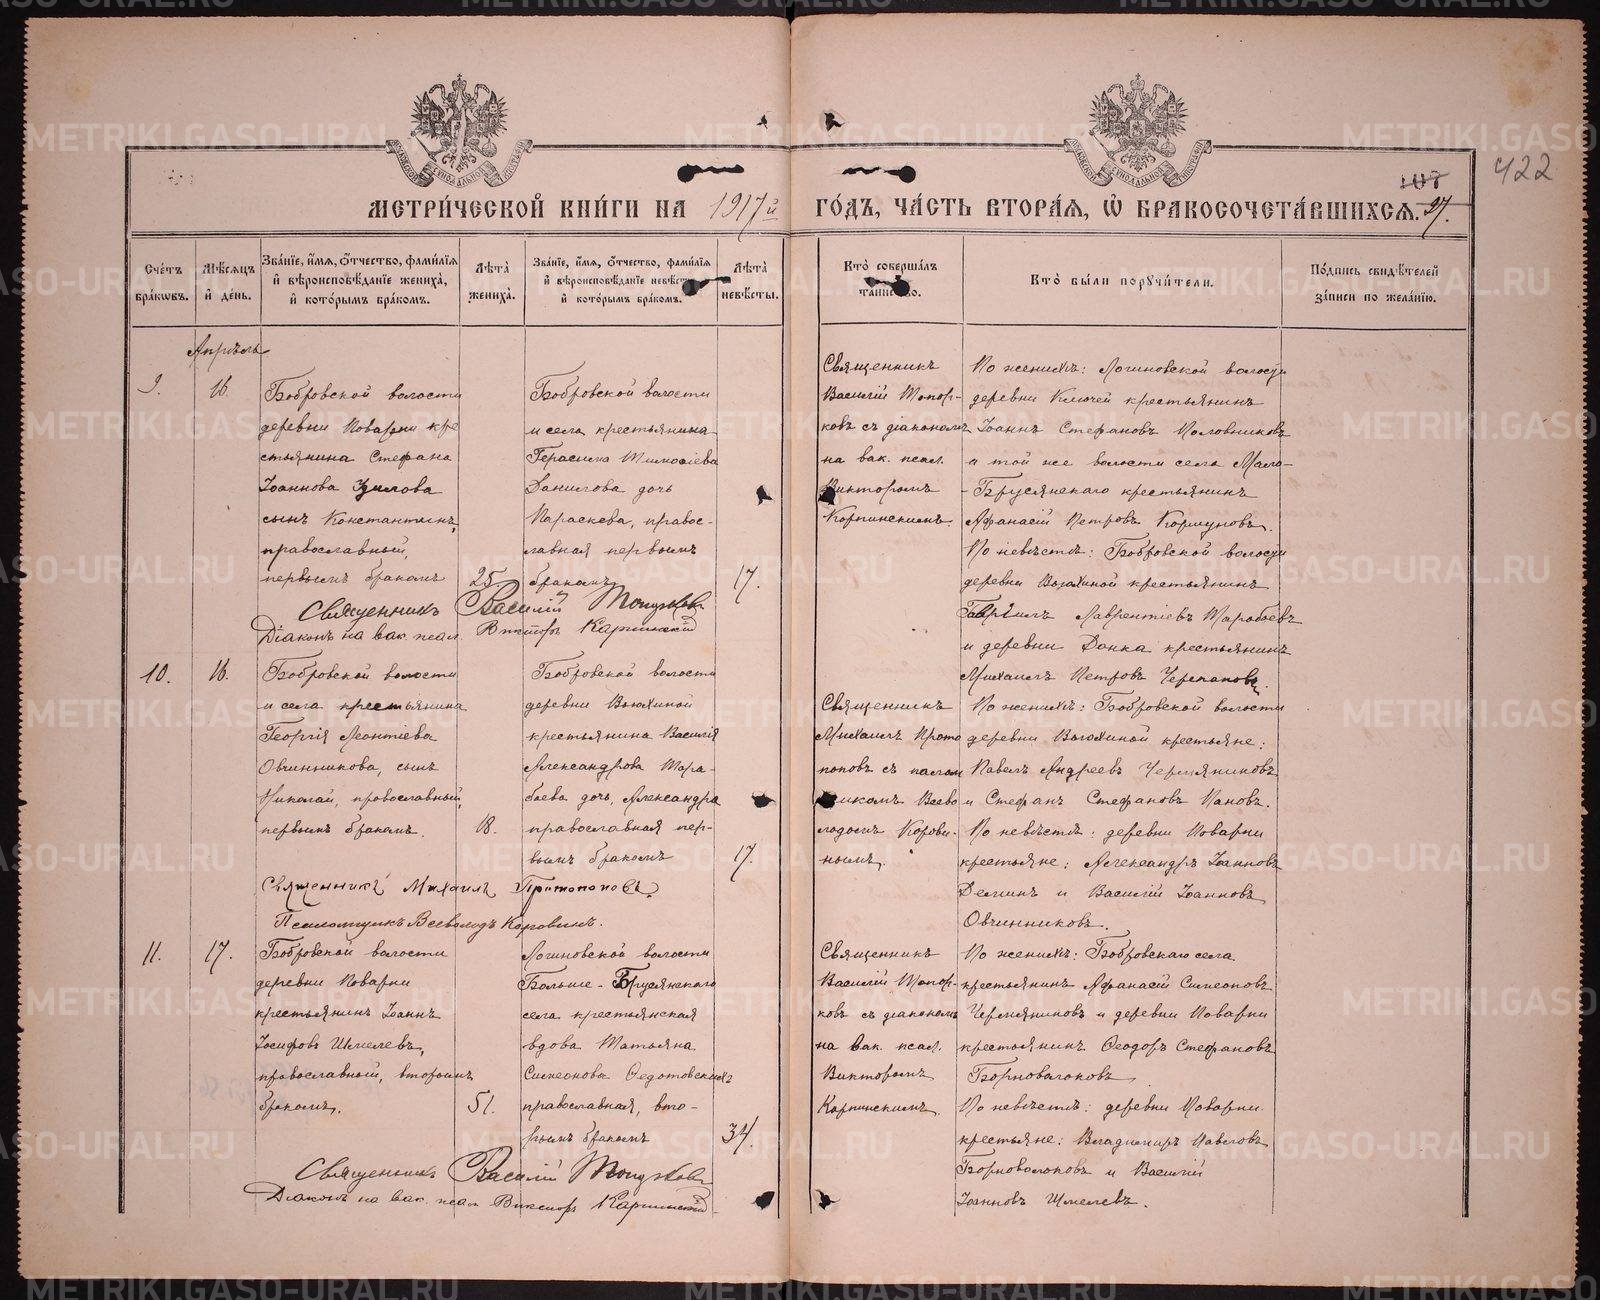 МЕТРИ́ЧЕСКОЙ КНИ́ГИ НА 1917й ГО́ДЪ, ЧА́СТЬ ВТОРА́Я, Ѽ БРАКОСОЧЕТА́ВШИХСЯ.
107
27.
422
Сче́тъ бра́ковъ.
Мѣ́сяцъ и҆ де́нь.
Зва́нїе, и҆́мя, ѻ҆́тчество, фами́лїя и҆ вѣроисповѣ́данїе жениха̀, и҆ кото́рымъ бра́комъ.
Лѣ́та жениха̀.
Зва́нїе, и҆́мя, ѻ҆́тчество, фами́лїя и҆ вѣроисповѣ́данїе невѣ́сты, и҆ кото́рымъ бра́комъ.
Лѣ́та невѣ́сты.
Кто̀ соверша́лъ
Кто̀ бы́ли поручи́тели.
По́дпись свидѣ́телей за́писи по жела́нїю.
Апрѣль
9.
16.
Бобровской волости
деревни Поварни кре
стьянина Стефана
Іоаннова
сынъ Константинъ,
православный,
первымъ бракомъ
25.
Бобровской волости
и села крестьянина
Герасима Тимоѳіева
Данилова дочь
Параскева, правос-
лавная первымъ
бракомъ
17.
Священникъ
Василій Топор-
ковъ съ діакономъ
на вак. псал.
Викторомъ
Карпинскимъ
По женихѣ: Логиновской волости
деревни Ключей крестьянинъ
Іоаннъ Стефановъ Половниковъ
и той же волости села Мало-
-Брусянскаго крестьянинъ
Аѳанасій Петровъ Коршуновъ.
По невѣстѣ: Бобровской волости
деревни Вьюхиной крестьянинъ
Гавріилъ Лаврентіевъ Таробаевъ
и деревни Донка крестьянинъ
Михаилъ Петровъ Черепановъ.
Священникъ Василій Топорковъ
Діаконъ на вак. псал. Викторъ Карпинскій
10.
16.
Бобровской волости
и села крестьянина
Георгія Леонтіева
Овчинникова, сынъ
Николай, православный,
первымъ бракомъ.
18.
Бобровской волости
деревни Вьюхиной
крестьянина Василія
Александрова Тара-
баева дочь, Александра
православная пер-
вымъ бракомъ
17.
Священникъ
Михаилъ Прото
поповъ съ псалом
щикомъ Всево
лодомъ Корови-
нымъ.
По женихѣ: Бобровской волости
деревни Вьюхиной крестьяне:
Павелъ Андреевъ Чермяниновъ
и Стефанъ Стефановъ Пановъ.
По невѣстѣ: деревни Поварни
крестьяне: Александръ Іоанновъ
Деминъ и Василій Іоанновъ
Овчинниковъ.
Священникъ Михаилъ Протопоповъ.
Псаломщикъ Всеволодъ Коровинъ.
11.
17.
Бобровской волости
деревни Поварни
крестьянинъ Іоаннъ
Іосифовъ Шмелевъ,
православный, вторымъ
бракомъ.
51.
Логиновской волости
Больше-Брусянскаго
села крестьянская
вдова Татьяна
Симеонова Ѳедотовскихъ
православная, вто-
рымъ бракомъ
34.
Священникъ
Василій Топор-
ковъ съ діакономъ
на вак. псал.
Викторомъ
Карпинскимъ.
По женихѣ: Бобровскаго села
крестьянинъ Аѳанасій Симеоновъ
Чермяниновъ и деревни Поварни
крестьянинъ Ѳеодоръ Стефановъ
Борноволоковъ.
По невѣстѣ: деревни Поварни
крестьяне: Владимиръ Павловъ
Борноволоковъ и Василій
Іоанновъ Шмелевъ.
Священникъ Василій Топорковъ
Діаконъ на вак. псал. Викторъ Карпинскій
METRIKI.GASO-URAL.RU